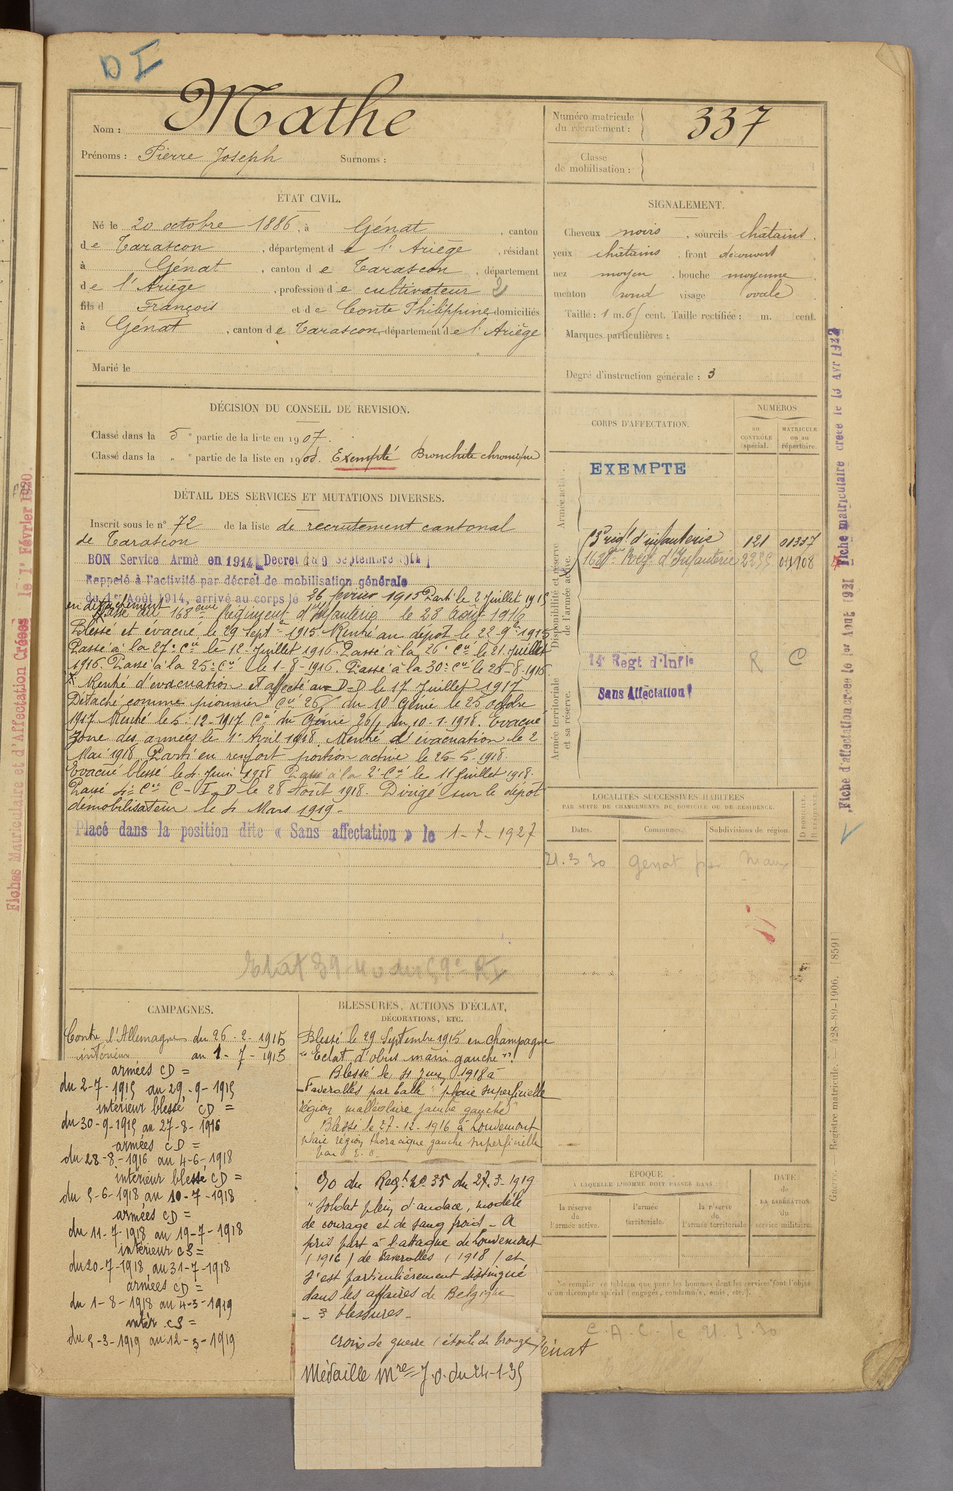 D I
Nom : Mathe
Prénoms : Pierre Joseph Surnoms :
Numéro matricule du recrutement : 337
Classe de mobilisation :
ÉTAT CIVIL.
Né le 20 octobre 1886, à Génat, canton
de Tarascon, département de l'Ariège, résidant
à Génat, canton de Tarascon, département
de l'Ariège, profession de cultivateur
fils d François et de Conte Philippine domiciliés
à Génat, canton de Tarascon, département de l'Ariège
Marié le
SIGNALEMENT.
Cheveux noirs, sourcils châtains
yeux châtains, front découvert
nez moyen, bouche moyenne
menton rond visage ovale
Taille : 1 m. 65 cent. Taille rectifiée : m. cent.
Marques particulières :
Degré d'instruction générale : 3
DÉCISION DU CONSEIL DE REVISION.
Classé dans la 5e partie de la liste en 1907.
Classé dans la " " partie de la liste en 1908. Exempté Bronchite chronique
DÉTAIL DES SERVICES ET MUTATIONS DIVERSES.
Inscrit sous le n° 72 de la liste de recrutement cantonal
de Tarascon
BON Service Armé en 1914 (Décret du 9 Septembre 1914)
Rappelé à l'activité par décret de mobilisation générale
du 1er Août 1914, arrivé au corps le 26 février 1915 Parti le 2 Juillet 1915
en détachement
Passé au 168eme Régiment d'Infanterie le 28 Août 1916
Blessé et évacué le 29 Septbre 1915. Rentré au dépôt le 22 9bre 1915
Passé à la 27e Cie le 12 Juillet 1916. Passé à la 26e Cie le 21 Juillet
1916. Passé à la 25e Cie le 1-8-1916. Passé à la 30e Cie le 28-8-1916
X Rentré d'évacuation et affecté au D-D le 17 Juillet 1917
Détaché comme pionnier Cie 26/ du 10 Génie le 25 octobre
1917. Rentré le 5-12-1917 Cie du Génie 26/ du 10-1-1918. Evacué
Zone des armées le 1er Avril 1918. Rentré d'évacuation le 2
Mai 1918. Parti en renfort portion active le 25-5-1918.
Evacué blessé le 4 Juin 1918 Passé à la 2e Cie le 11 Juillet 1918.
Passé 4e Cie C-I-D le 28 Août 1918. Dirigé sur le dépôt
démobilisateur le 4 Mars 1919-
Placé dans la position dite « Sans affectation » le 1-7-1927
CORPS D'AFFECTATION.
NUMÉROS
AU CONTRÔLE spécial.
MATRICULE OU AU répertoire.
EXEMPTE
Armée active.
Disponibilité et réserve de l'armée active.
Armée territoriale et sa réserve.
règt d'infanterie 121 01337
168eme Rég. d'Infanterie 01108
14e Regt d'Infie R C
Sans Affectation
LOCALITÉS SUCCESSIVES HABITÉES
PAR SUITE DE CHANGEMENTS DE DOMICILE OU DE RÉSIDENCE.
Dates. Communes. Subdivisions de région.
21.3.30 Génat
CAMPAGNES.
Contre l'Allemagne du 26-2-1915
intérieur au 1-7-1915
armées CD =
du 2-7-1915 au 29-9-1915
intérieur blessé CD =
du 30-9-1915 au 27-8-1916
armées CD =
du 28-8-1916 au 4-6-1918
intérieur blessé CD =
du 5-6-1918 au 10-7-1918
armées CD =
du 11-7-1918 au 19-7-1918
intérieur CS =
du 20-7-1918 au 31-7-1918
armées CD =
du 1-8-1918 au 4-3-1919
intér CS =
du 5-3-1919 au 12-3-1919
BLESSURES, ACTIONS D'ÉCLAT,
DÉCORATIONS, ETC.
Blessé le 29 Septembre 1915 en champagne
"Eclat d'obus main gauche"
Blessé le 4 Juin 1918 à
Faverolles par balle : plaie superficielle
région malléolaire jambe gauche
Blessé le 27-12-1916 à Louvemont
plaie région thoracique gauche superficielle
par E. O.
C/O du Regt N° 35 du 27.3.1919
"Soldat plein d'audace, modèle
de courage et de sang froid - A
pris part à l'attaque de Louvemont
(1916) de Faverolles (1918) et
s'est particulièrement distingué
dans les affaires de Belgique
- 3 blessures -
Croix de guerre (étoile de bronze)
Médaille Mre J.O. du 24-1-35
ÉPOQUE
À LAQUELLE L'HOMME DOIT PASSER DANS :
la réserve de l'armée active.
l'armée territoriale.
la réserve de l'armée territoriale.
DATE
de
LA LIBÉRATION
du
service militaire.
Ne remplir ce tableau que pour les hommes dont les services font l'objet
d'un décompte spécial (engagés, condamnés, omis, etc.).
C.A.C. le 21.3.30
Génat
Fiches Matriculaire et d'Affectation Créées le 1er Février 1920.
Fiche d'affectation créée le 1er Août 1921
Fiche matriculaire créée le 15 Avr 1922
Registre matricule. 428-89-1906. [859]